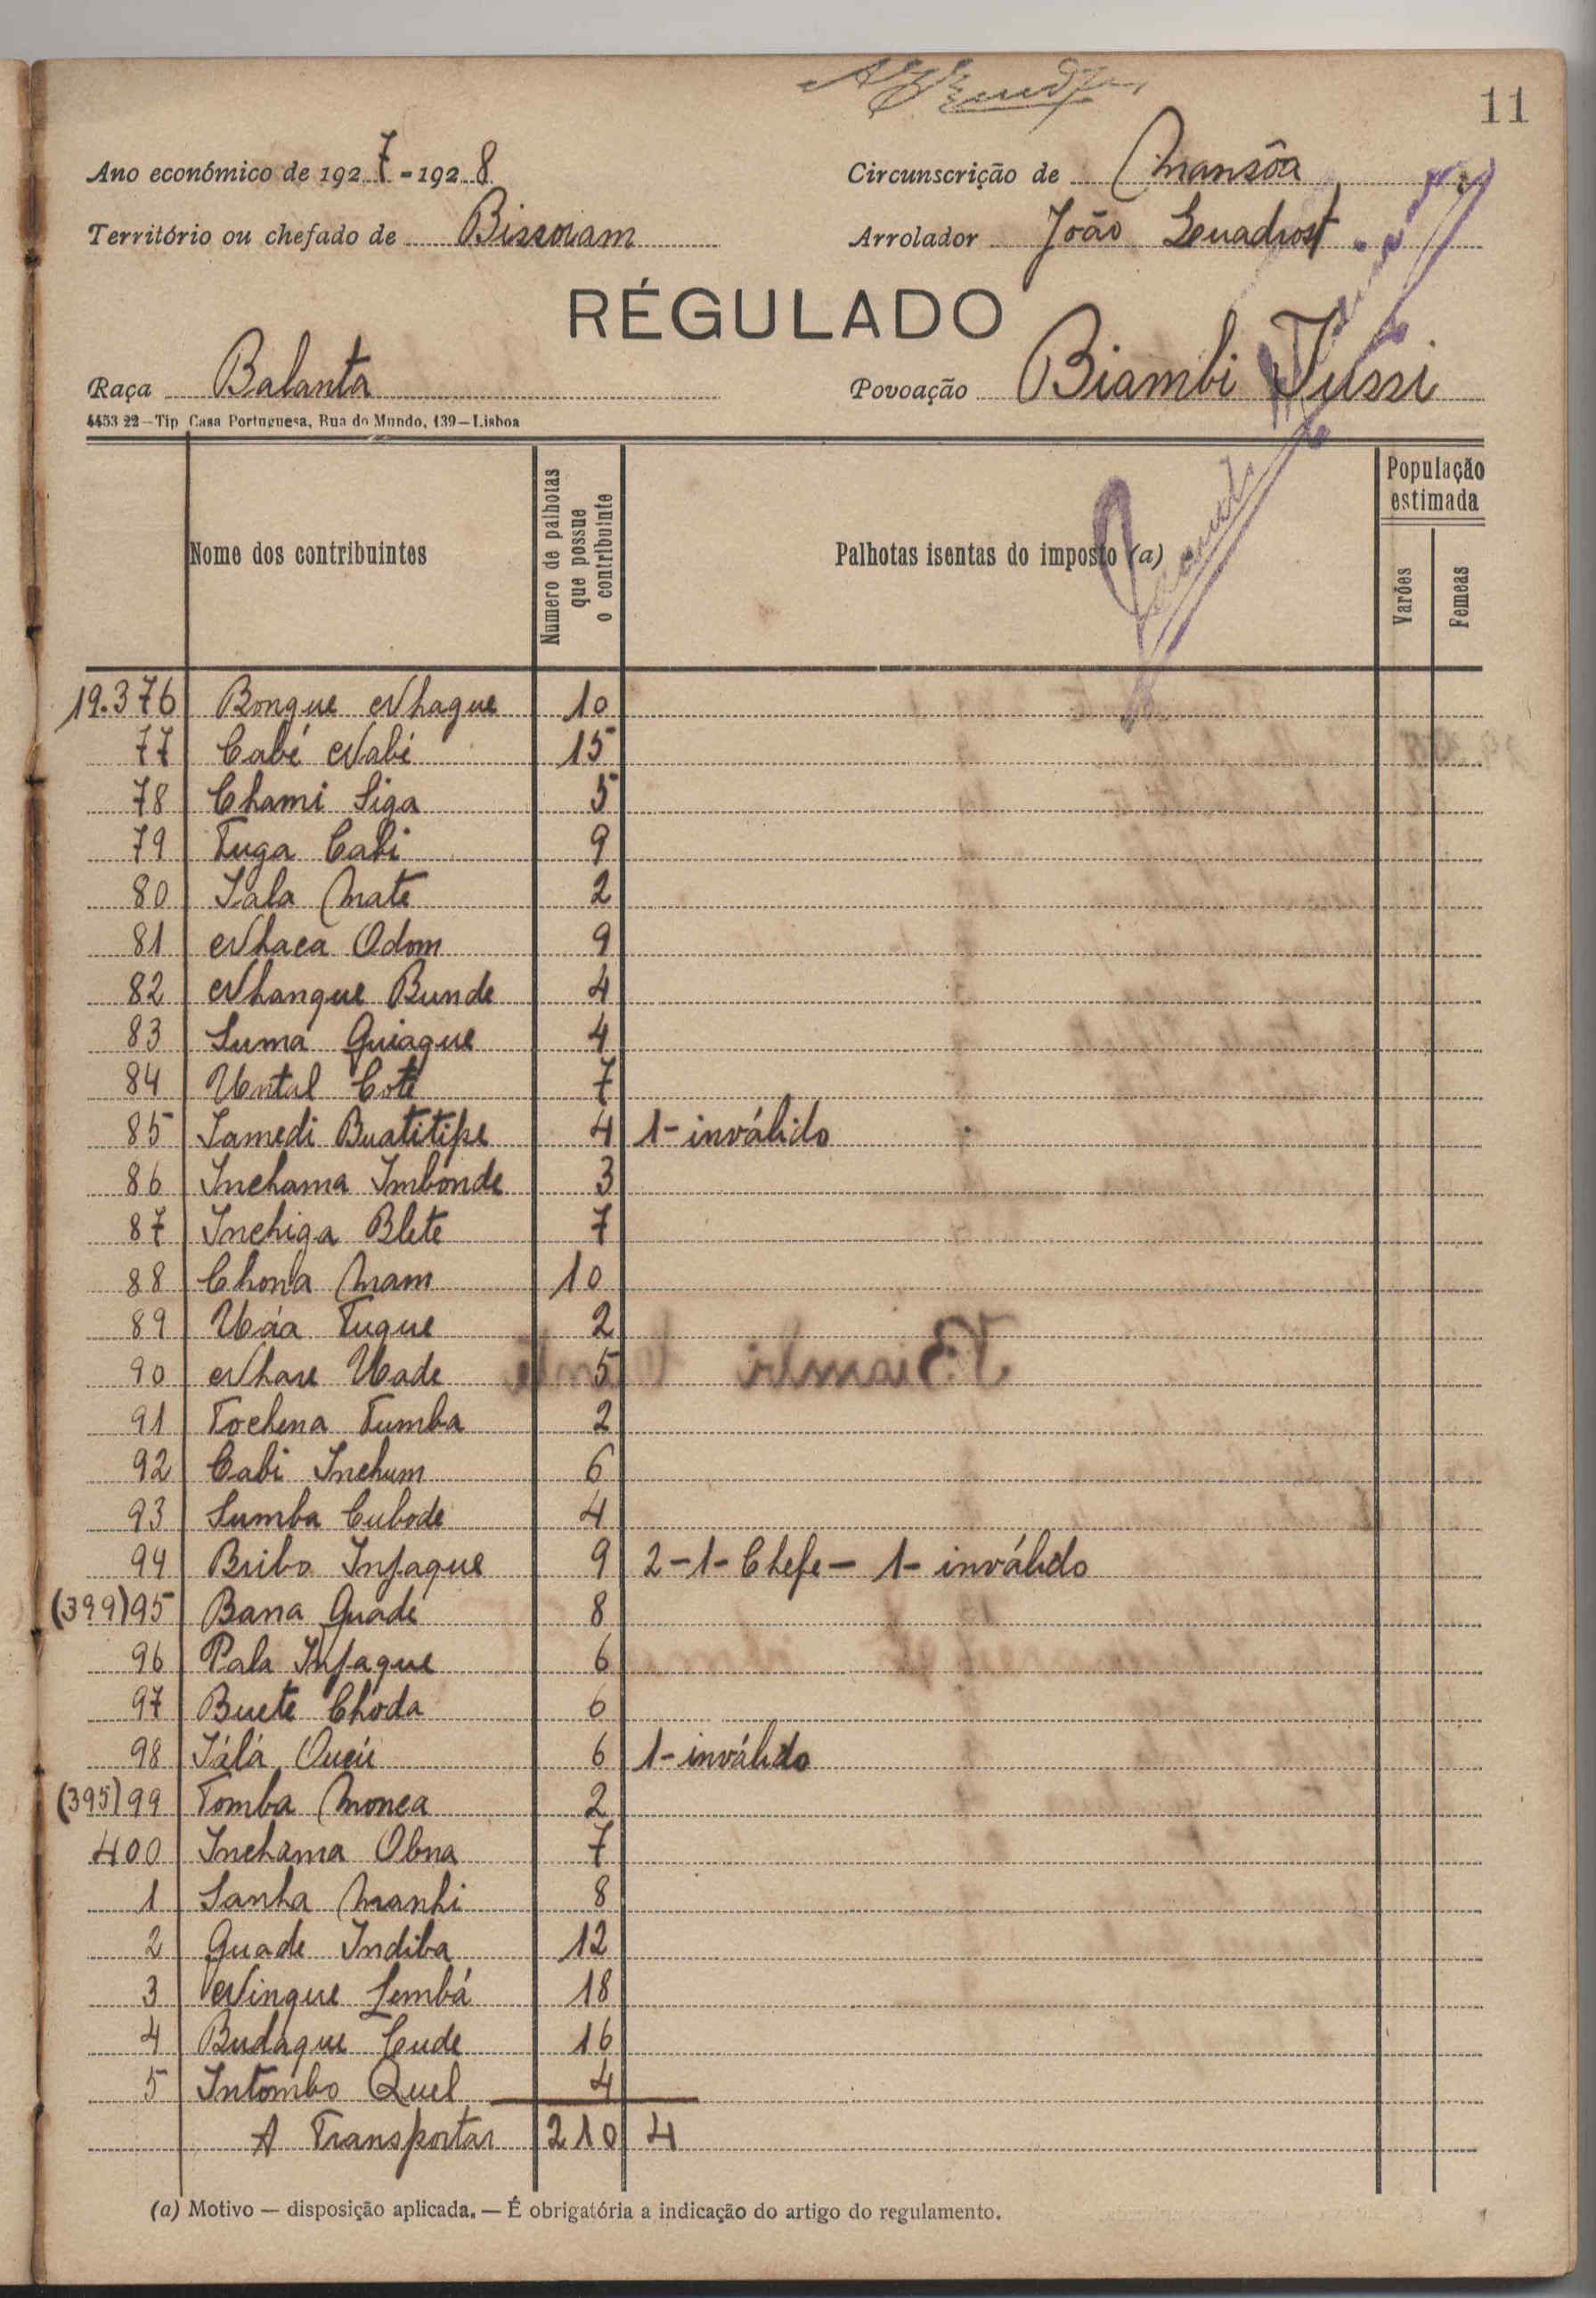 11
Ano económico de 1927-1928
Circunscrição de Mansôa
Território ou chefado de Bissoram
Arrolador João
RÉGULADO
Raça Balanta
Povoação Biambi Iussi
4453 22—Tip Casa Portuguesa, Rua do Mundo, 139—Lisboa
Nome dos contribuintes
Número de palhotas que possue o contribuinte
Palhotas isentas do imposto (a)
População estimada
Varões
Femeas
19.376 Bongue Nhague 10
77 Cabé Nabi 15
78 Chami Siga 5
79 Tuga Cabi 9
80 Sala Mate 2
81 Nhaca Odom 9
82 Nhangue Bunde 4
83 Suma Guiague 4
84 Uental Coté 7
85 Samedi Buatitipe 4 1-inválido
86 Inchama Imbonde 3
87 Inchiga Blete 7
88 Chona Mam 10
89 Uáa Tugue 2
90 Nhase Uade 5
91 Tochena Tumba 2
92 Cabi Inchum 6
93 Sumba Cubode 4
94 Bribo Infaque 9 2-1-Chefe-1-inválido
(399)95 Bana Guade 8
96 Pala Infaque 6
97 Buete Choda 6
98 Sálá 6 1-inválido
(395)99 Tomba Monca 2
400 Inchama Obna 7
1 Sanha Manhi 8
2 Guade Indiba 12
3 Ningue Lembá 18
4 Budague Cude 16
5 Intombo Quel 4
A Transportar 210 4
(a) Motivo — disposição aplicada. — É obrigatória a indicação do artigo do regulamento.